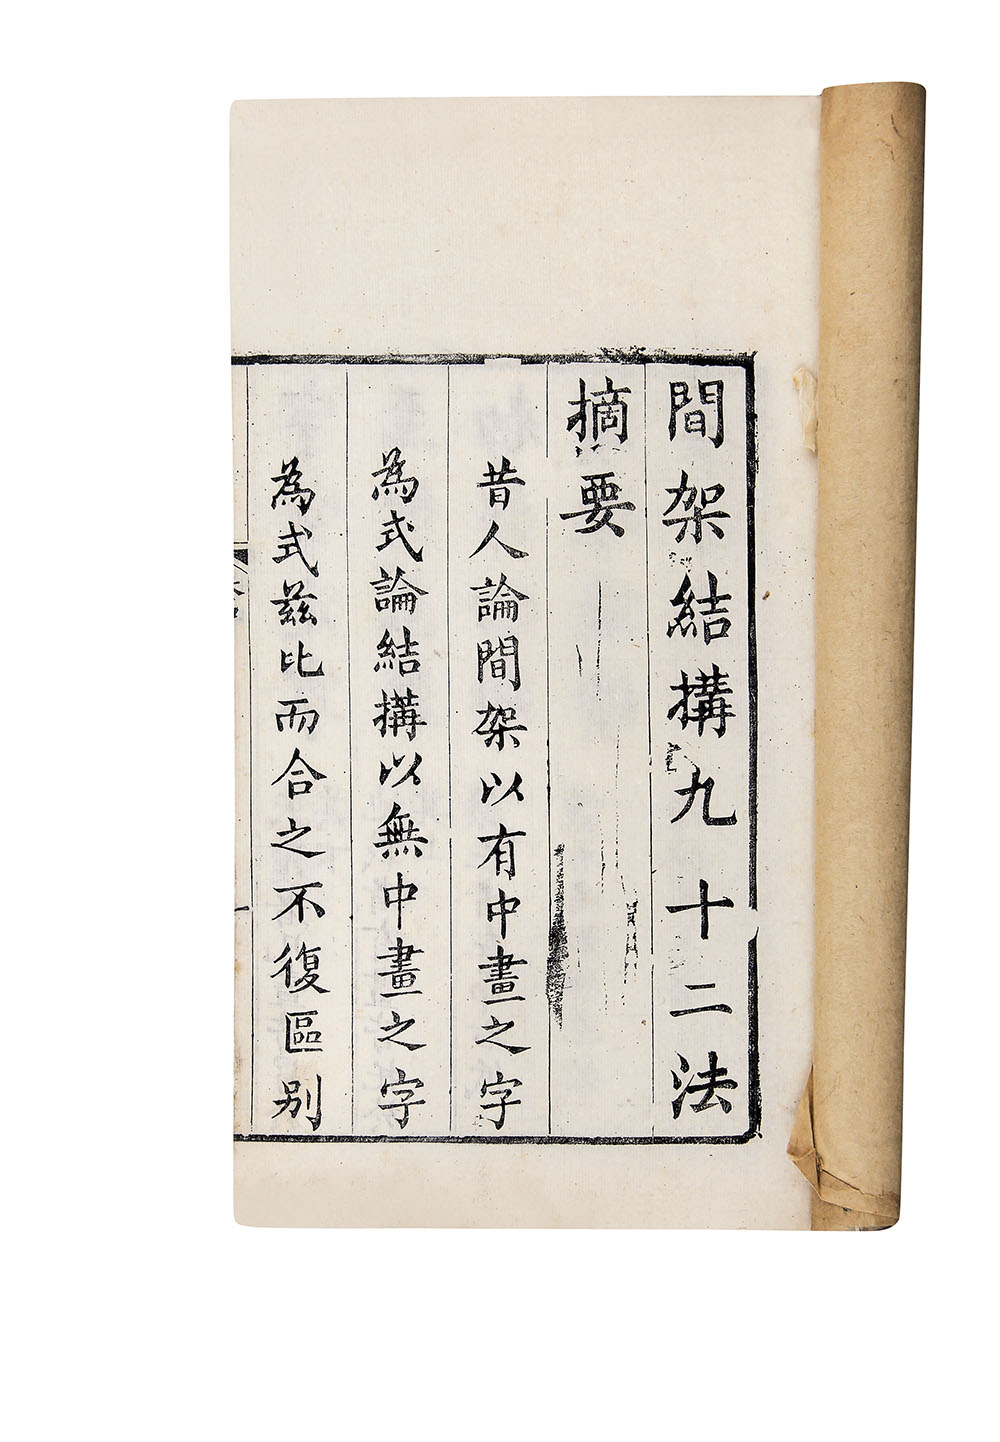 間架結構九十二法
摘要
昔人論間架以有中畫之字
為式論結構以無中畫之字
為式茲比而合之不復區别